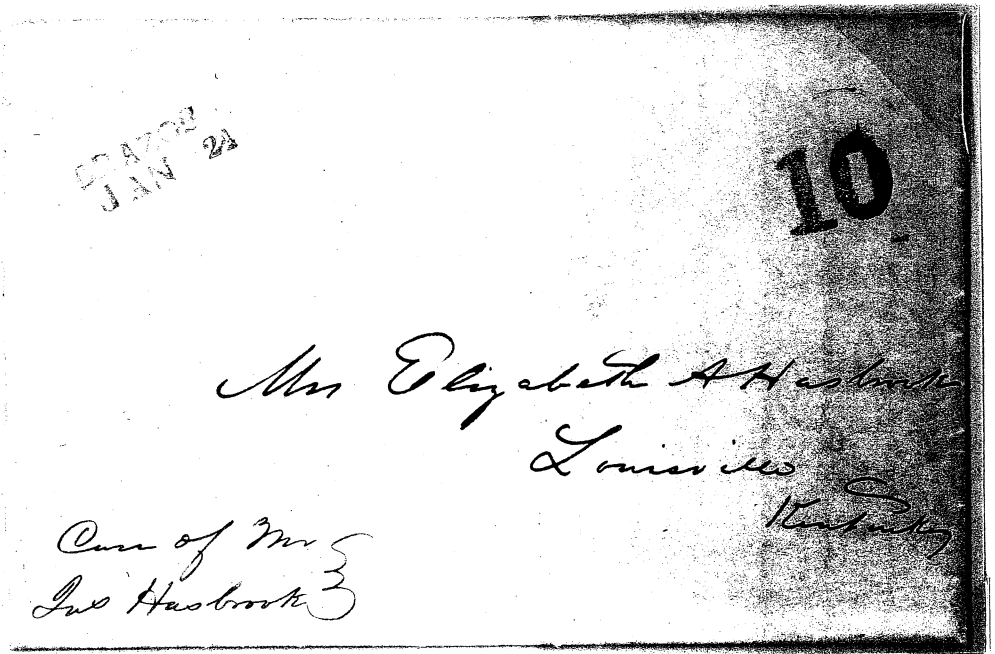 BRAZOS
JAN 24
10
Mrs Elizabeth A Hasbrook
Louisville
Kentucky
Care of Mr
Jas Hasbrook